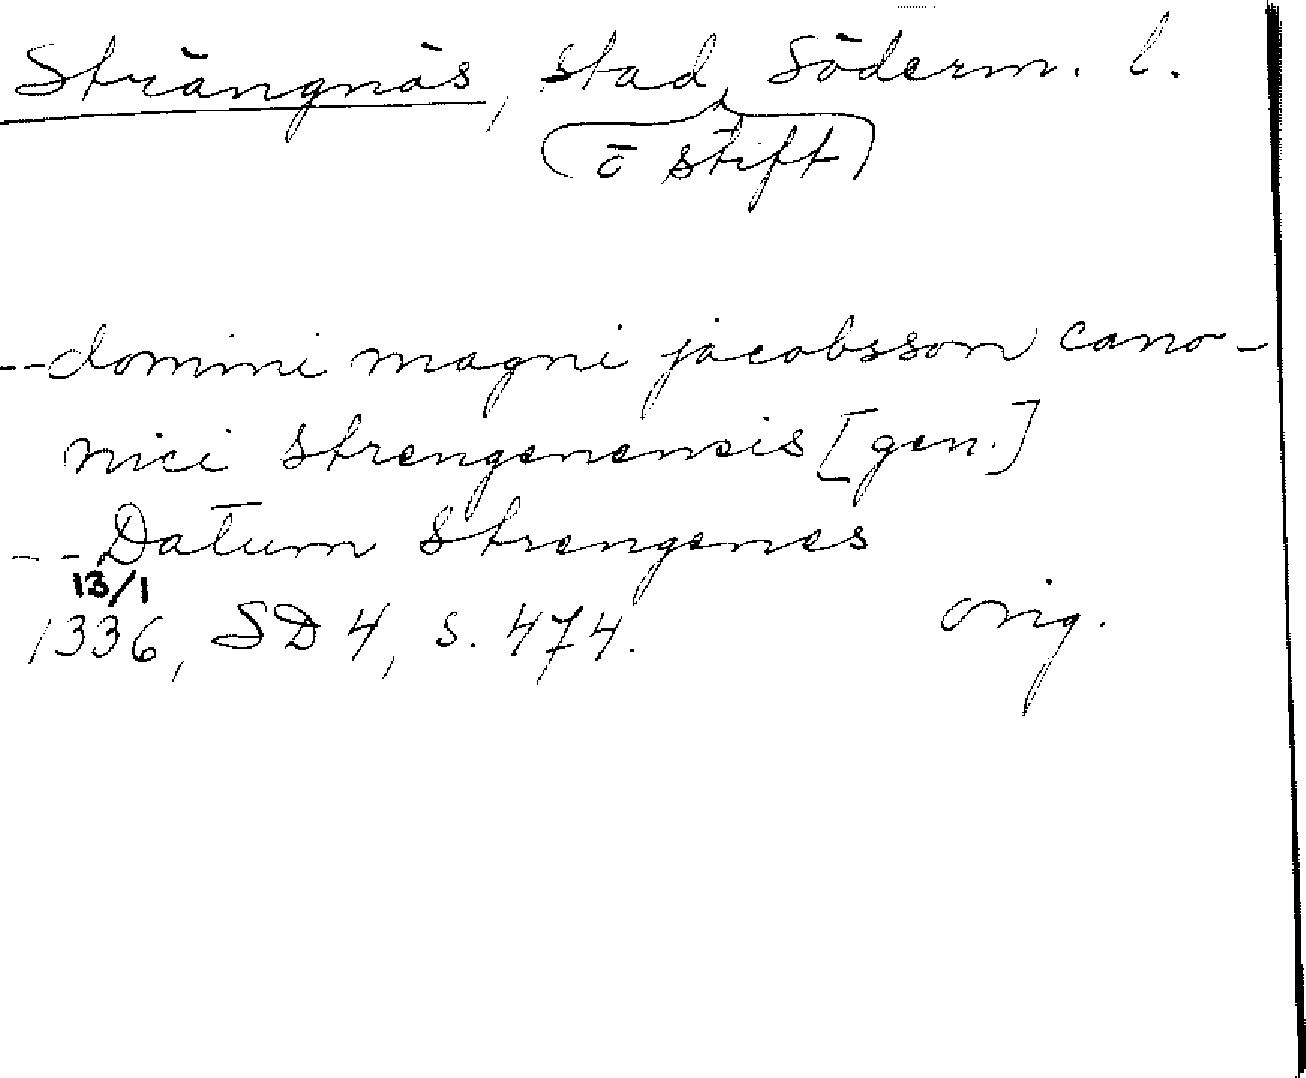 Strängnäs, stad, Söderm. l.
ö stift
--domini magni jacobsson cano-
nici strengenensis [gen.]
-- Datum Strengenes
13/1
1336, SD 4, s. 474. orig.